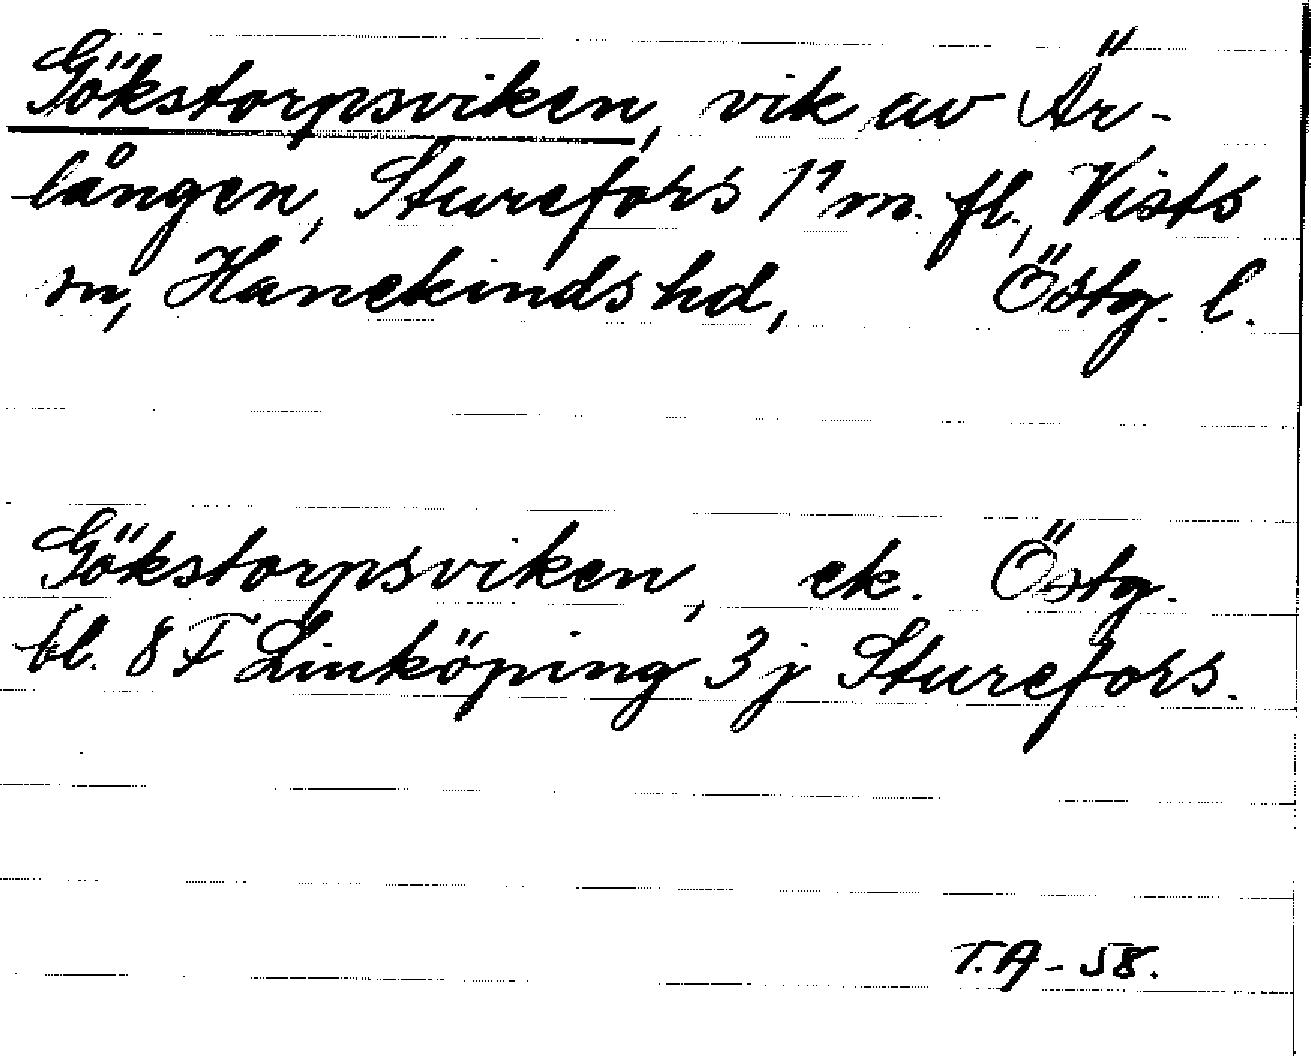 Gökstorpsviken, vik av Är-
lången, Sturefors 1¹ m. fl., Vists
sn, Hanekinds hd, Östg. l.
Gökstorpsviken, ek. Östg.
bl. 8 F Linköping 3j Sturefors.
T.A-58.